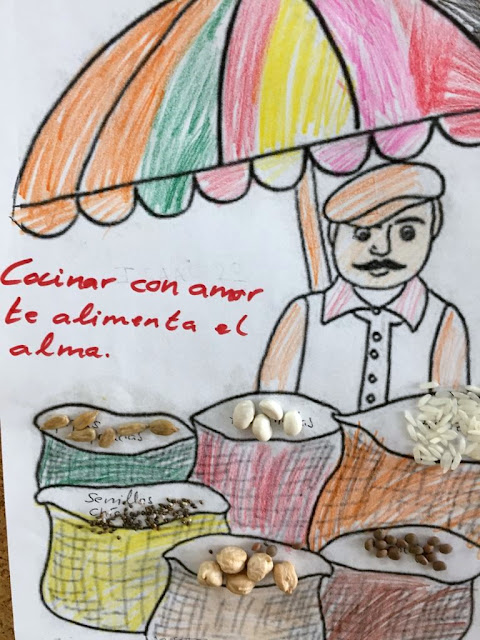 Cocinar con amor
te alimenta el
alma.
Semillas